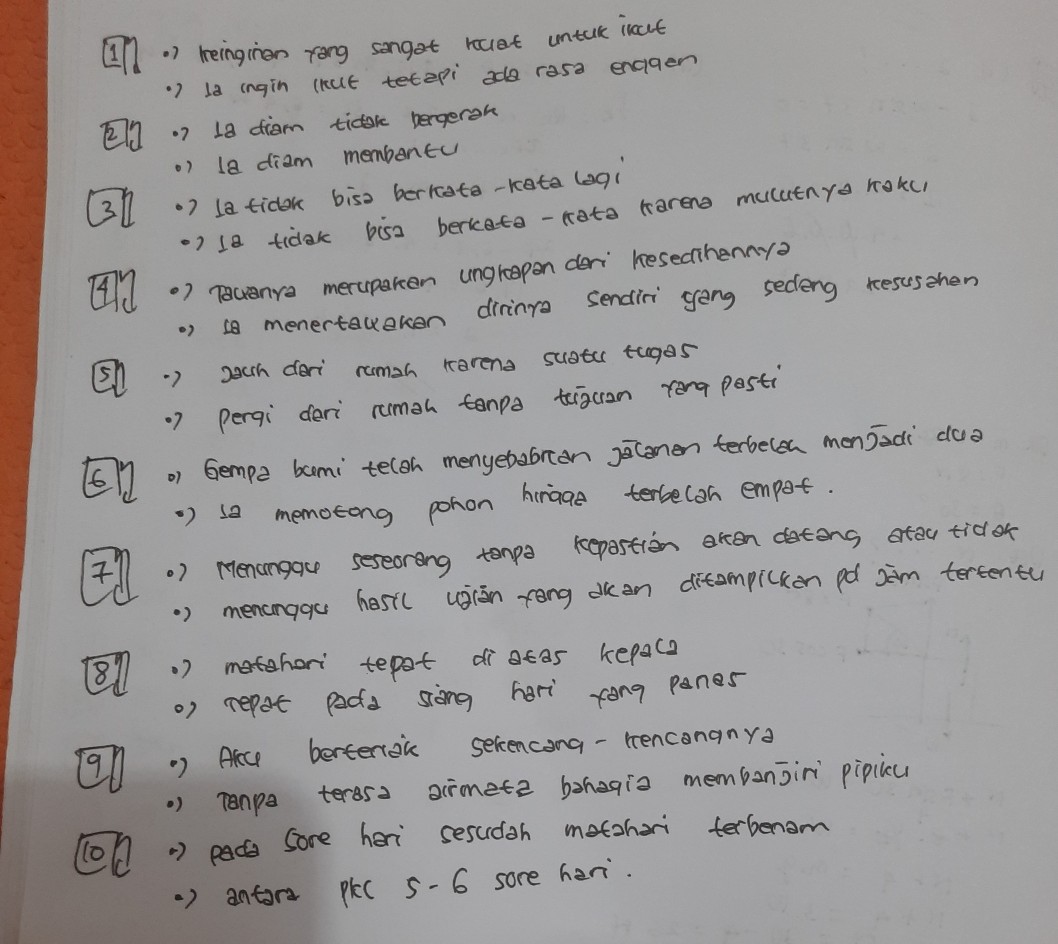 1] •) keinginan yang sangat kuat untuk ikut
•) Ia ingin ikut tetapi ada rasa enggan
2] •) Ia diam tidak bergerak
•) Ia diam membantu
3] •) Ia tidak bisa berkata-kata lagi
•) Ia tidak bisa berkata-kata karena mulutnya kaku
4] •) Tawanya merupakan ungkapan dari kesedihannya
•) Ia menertawakan dirinya sendiri yang sedang kesusahan
5] •) Jauh dari rumah karena suatu tugas
•) Pergi dari rumah tanpa tujuan yang pasti
6] •) Gempa bumi telah menyebabkan jalanan terbelah menjadi dua
•) Ia memotong pohon hingga terbelah empat.
7] •) Menunggu seseorang tanpa kepastian akan datang atau tidak
•) menunggu hasil ujian yang akan ditampilkan pd jam tertentu
8] •) matahari tepat di atas kepala
•) Tepat pada siang hari yang panas
9] •) Aku berteriak sekencang-kencangnya
•) Tanpa terasa airmata bahagia membanjiri pipiku
10] •) pada sore hari sesudah matahari terbenam
•) antara pkl 5-6 sore hari.